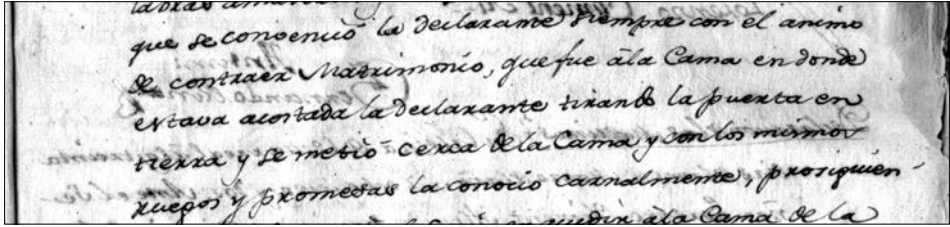 labras amato
que se convenció la declarante siempre con el animo
de contraer Matrimonio, que fue âla Cama en donde
estava acostada la declarante tirando la puerta en
tierra y se metió cerca de la Cama y con los mismos
ruegos y promesas la conocio carnalmente, prosiguien-
udir ala Cama de la